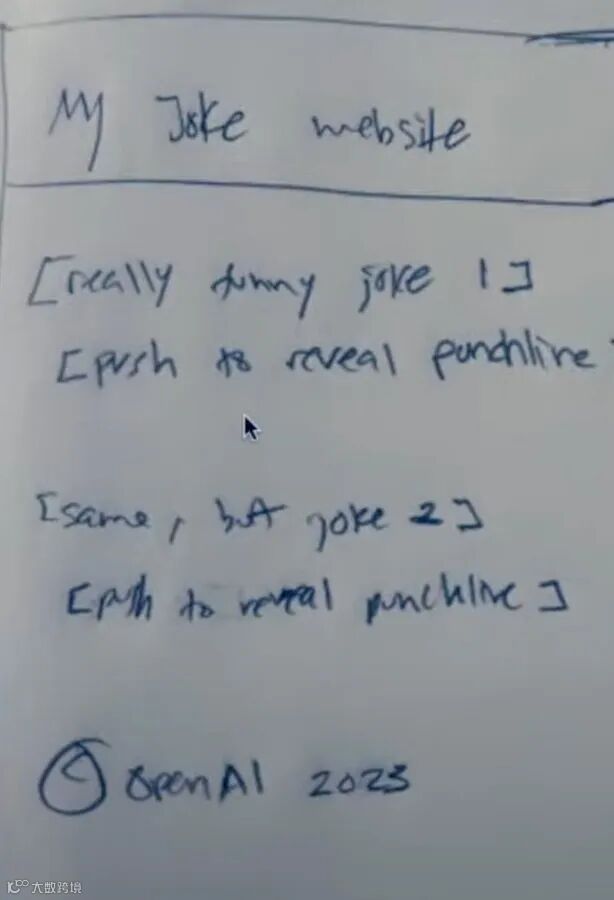 My Joke website
[really funny joke 1]
[push to reveal punchline
[same, but joke 2]
[push to reveal punchline]
© OpenAI 2023
大数跨境